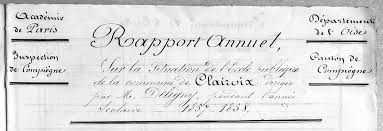 Académie
de Paris
Inspection
de Compiègne
Rapport Annuel,
Sur la Situation de l'Ecole publique
de la commune de Clairoix, dirigée
par M. Delligny pendant l'année
Scolaire 1857-1858.
Département
de l'Oise
Canton de
Compiègne